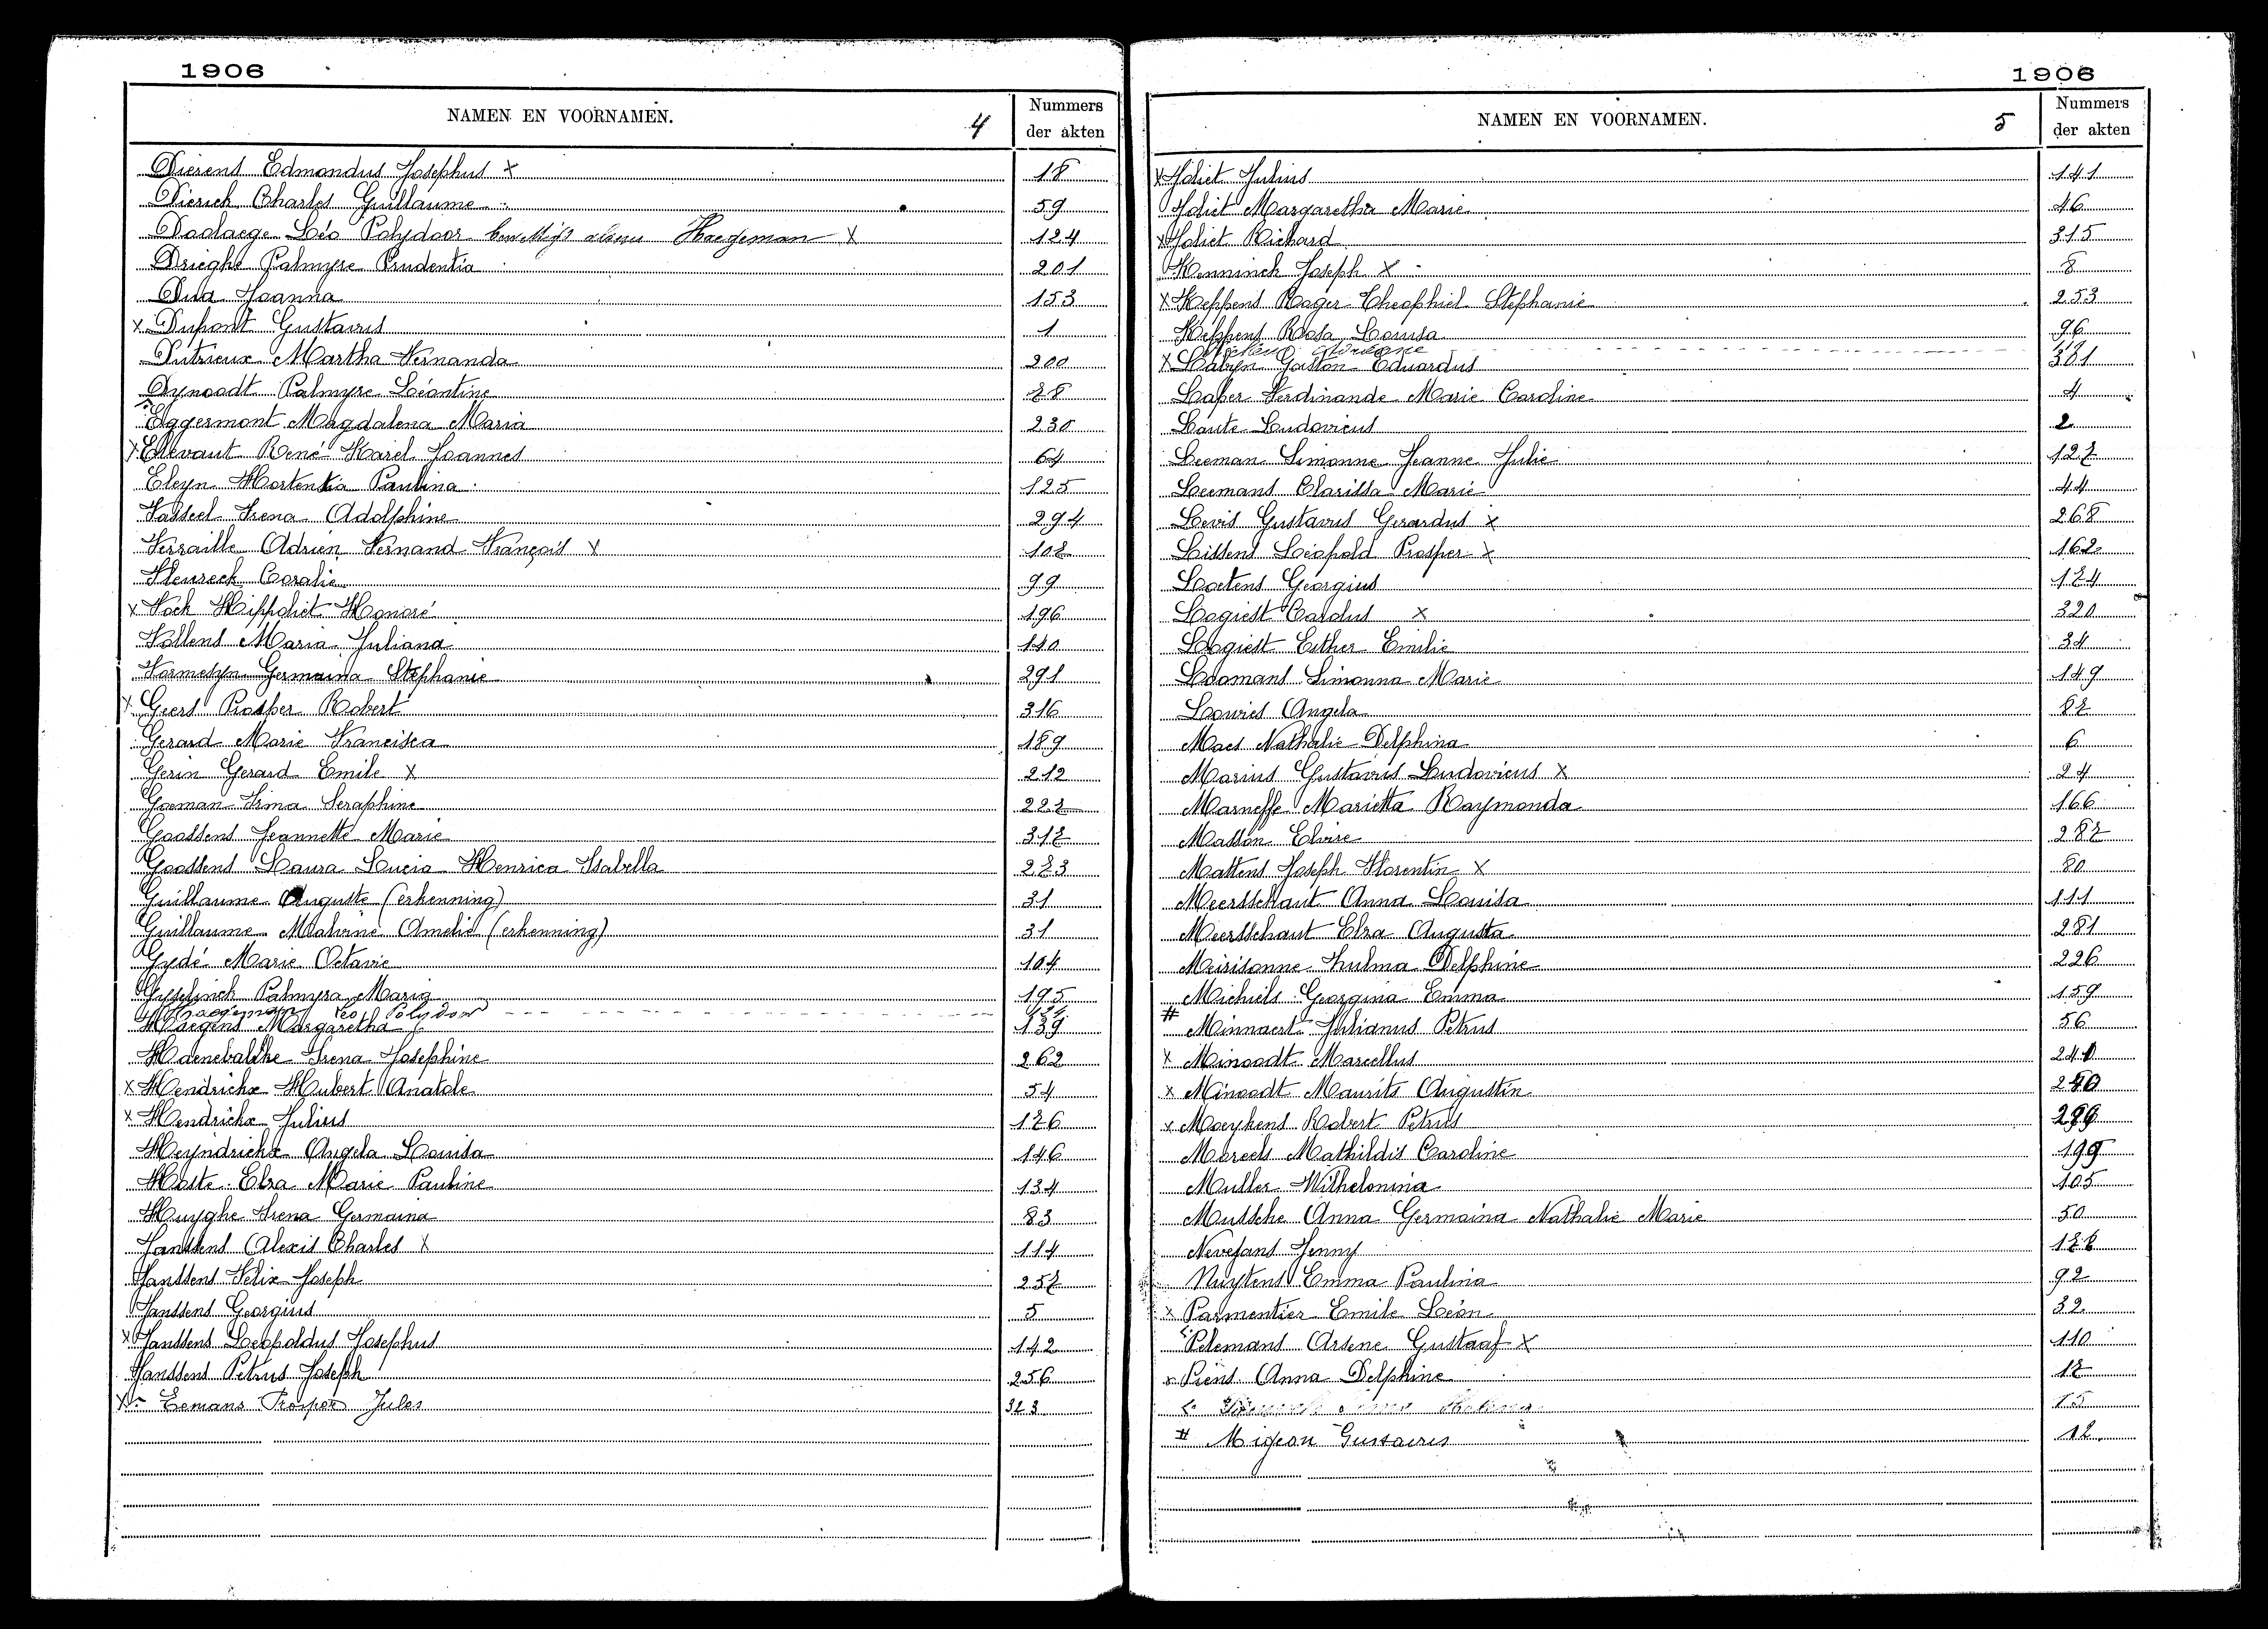 1906
NAMEN EN VOORNAMEN. 4 Nummers der akten
Dierens Edmondus Josephus X 18
Dierick Charles Guillaume 59
Doolaege Léo Polydoor Haegeman X 124
Drieghe Palmyre Prudentia 201
Dua Joanna 153
X Dupont Gustavus 1
Dutrieux Martha Fernanda 200
Dynoodt Palmyre Léontine 78
Eggermont Magdalena Maria 230
X Elevaut René Karel Joannes 64
Eleyn Hortentia Paulina 125
Fasseel Irena Adolphine 294
Ferraille Adrien Fernand François X 107
Fleureck Coralie 99
X Fock Hippoliet Honoré 196
Follens Maria Juliana 140
Formesyn Germaina Stephanie 291
X Geers Prosper Robert 316
Gerard Marie Francisca 189
Gerin Gerard Emile X 212
Goeman Irma Seraphine 227
Goossens Jeannette Marie 317
Goossens Laura Lucia Henrica Isabella 273
Guillaume Auguste (erkenning) 31
Guillaume Malvine Amelie (erkenning) 31
Gydé Marie Octavie 104
Gyselinck Palmyra Maria 195
Haegeman Leo Polydoor 124
Haegens Margaretha 139
Haenebalcke Irena Josephine 262
X Hendrickx Hubert Anatole 54
X Hendrickx Julius 176
Heyndrickx Angela Louisa 146
Hoste Elza Marie Pauline 134
Huyghe Irena Germaina 83
Janssens Alexis Charles X 114
Janssens Felix Joseph 257
Janssens Georgius 5
X Janssens Leopoldus Josephus 142
Janssens Petrus Joseph 256
X Eemans Prosper Jules 323
1906
NAMEN EN VOORNAMEN. 5 Nummers der akten
X Joliet Julius 141
Joliet Margaretha Marie 46
X Joliet Richard 315
Kenninck Joseph X 8
X Keppens Roger Theophiel Stephanie 253
Keppens Rosa Louisa 96
X Labyn Gaston Eduardus 301
Laper Ferdinande Marie Caroline 4
Laute Ludovicus 2
Leeman Simonne Jeanne Julie 127
Leemans Clarissa Marie 44
Levis Gustavus Gerardus X 268
Lissens Léopold Prosper X 162
Loetens Georgius 174
Logiest Carolus X 320
Logiest Esther Emilie 34
Loomans Simonna Marie 149
Louries Angela 87
Maes Nathalie Delphina 6
Marius Gustavus Ludovicus X 24
Marneffe Marietta Raymonda 166
Masson Elvire 287
Mattens Joseph Florentin X 80
Meersschaut Anna Louisa 111
Meersschaut Elza Augusta 281
Meirisonne Zulma Delphine 226
Michiels Georgina Emma 159
# Minnaert Julianus Petrus 56
X Minoodt Marcellus 241
X Minoodt Maurits Augustin 240
X Moeykens Robert Petrus 299
Moreels Mathildis Caroline 199
Muller Wilhelmina 105
Mussche Anna Germaina Nathalie Marie 50
Nevejans Jenny 178
Nuytens Emma Paulina 92
X Parmentier Emile Léon 32
Pelemans Arsene Gustaaf X 110
Piens Anna Delphine 17
15
# Migeon Gustavus 12